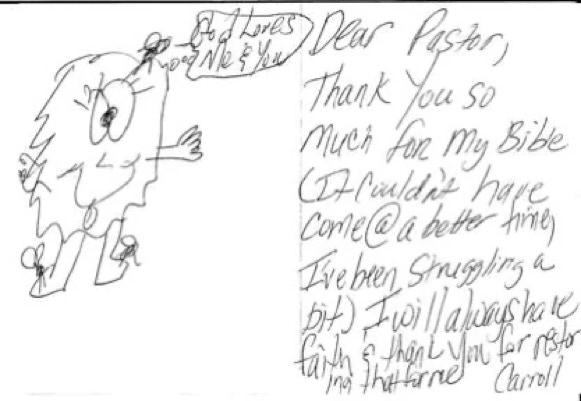 God Loves
Me & You
Dear Pastor,
Thank You so
Much for My Bible
(It Couldn't have
come @ a better time,
I've been Struggling a
bit) I will always have
faith & thank You for restor
ing that for me Carroll